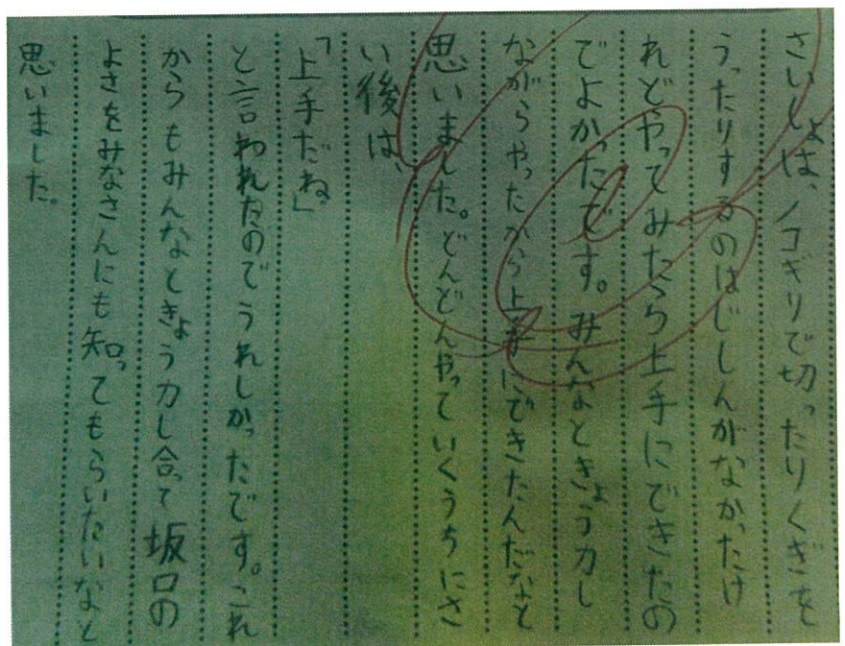 さいしょは、ノコギリで切ったりくぎを
うったりするのはじしんがなかったけ
れどやってみたら上手にできたの
でよかったです。みんなときょう力し
ながらやったから上手にできたんだなと
思いました。どんどんやっていくうちにさ
い後は、
「上手だね」
と言われたのでうれしかったです。これ
からもみんなときょう力し合って坂口の
よさをみなさんにも知ってもらいたいなと
思いました。